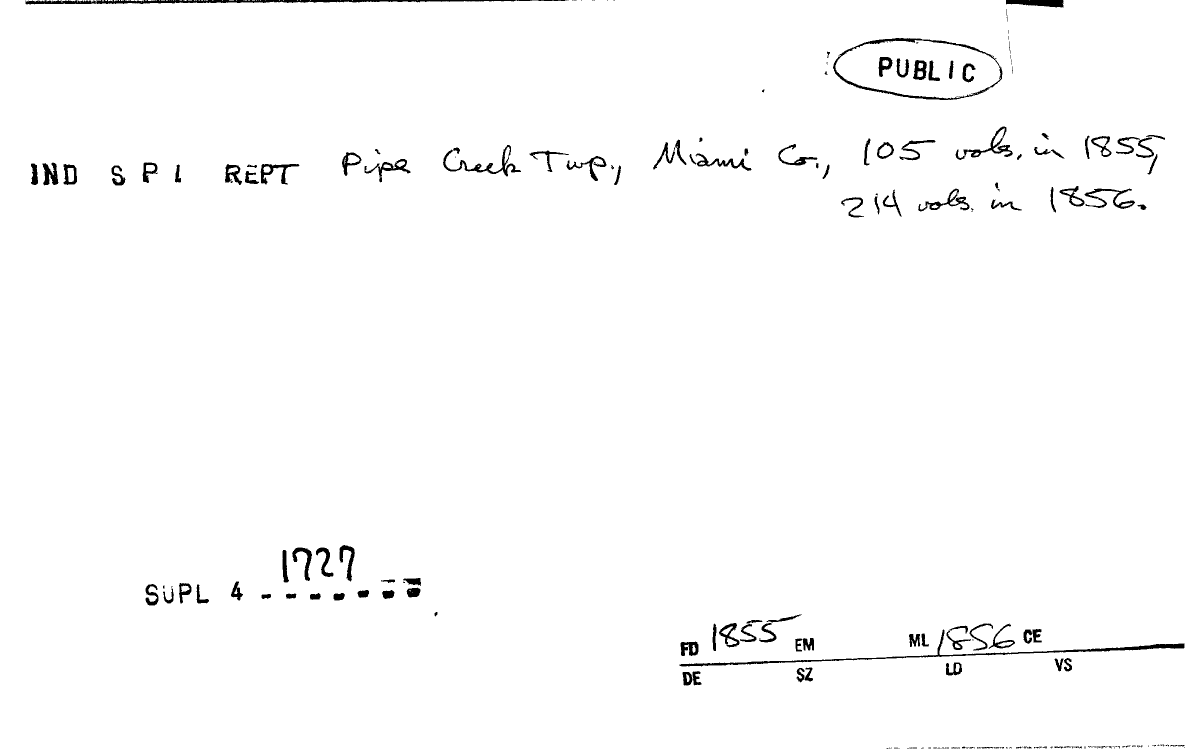 PUBLIC
IND S P I REPT Pipe Creek Twp., Miami Co., 105 vols. in 1855,
214 vols. in 1856.
1727
SUPL 4 -------
FD 1855 EM ML 1856 CE
DE SZ LD VS